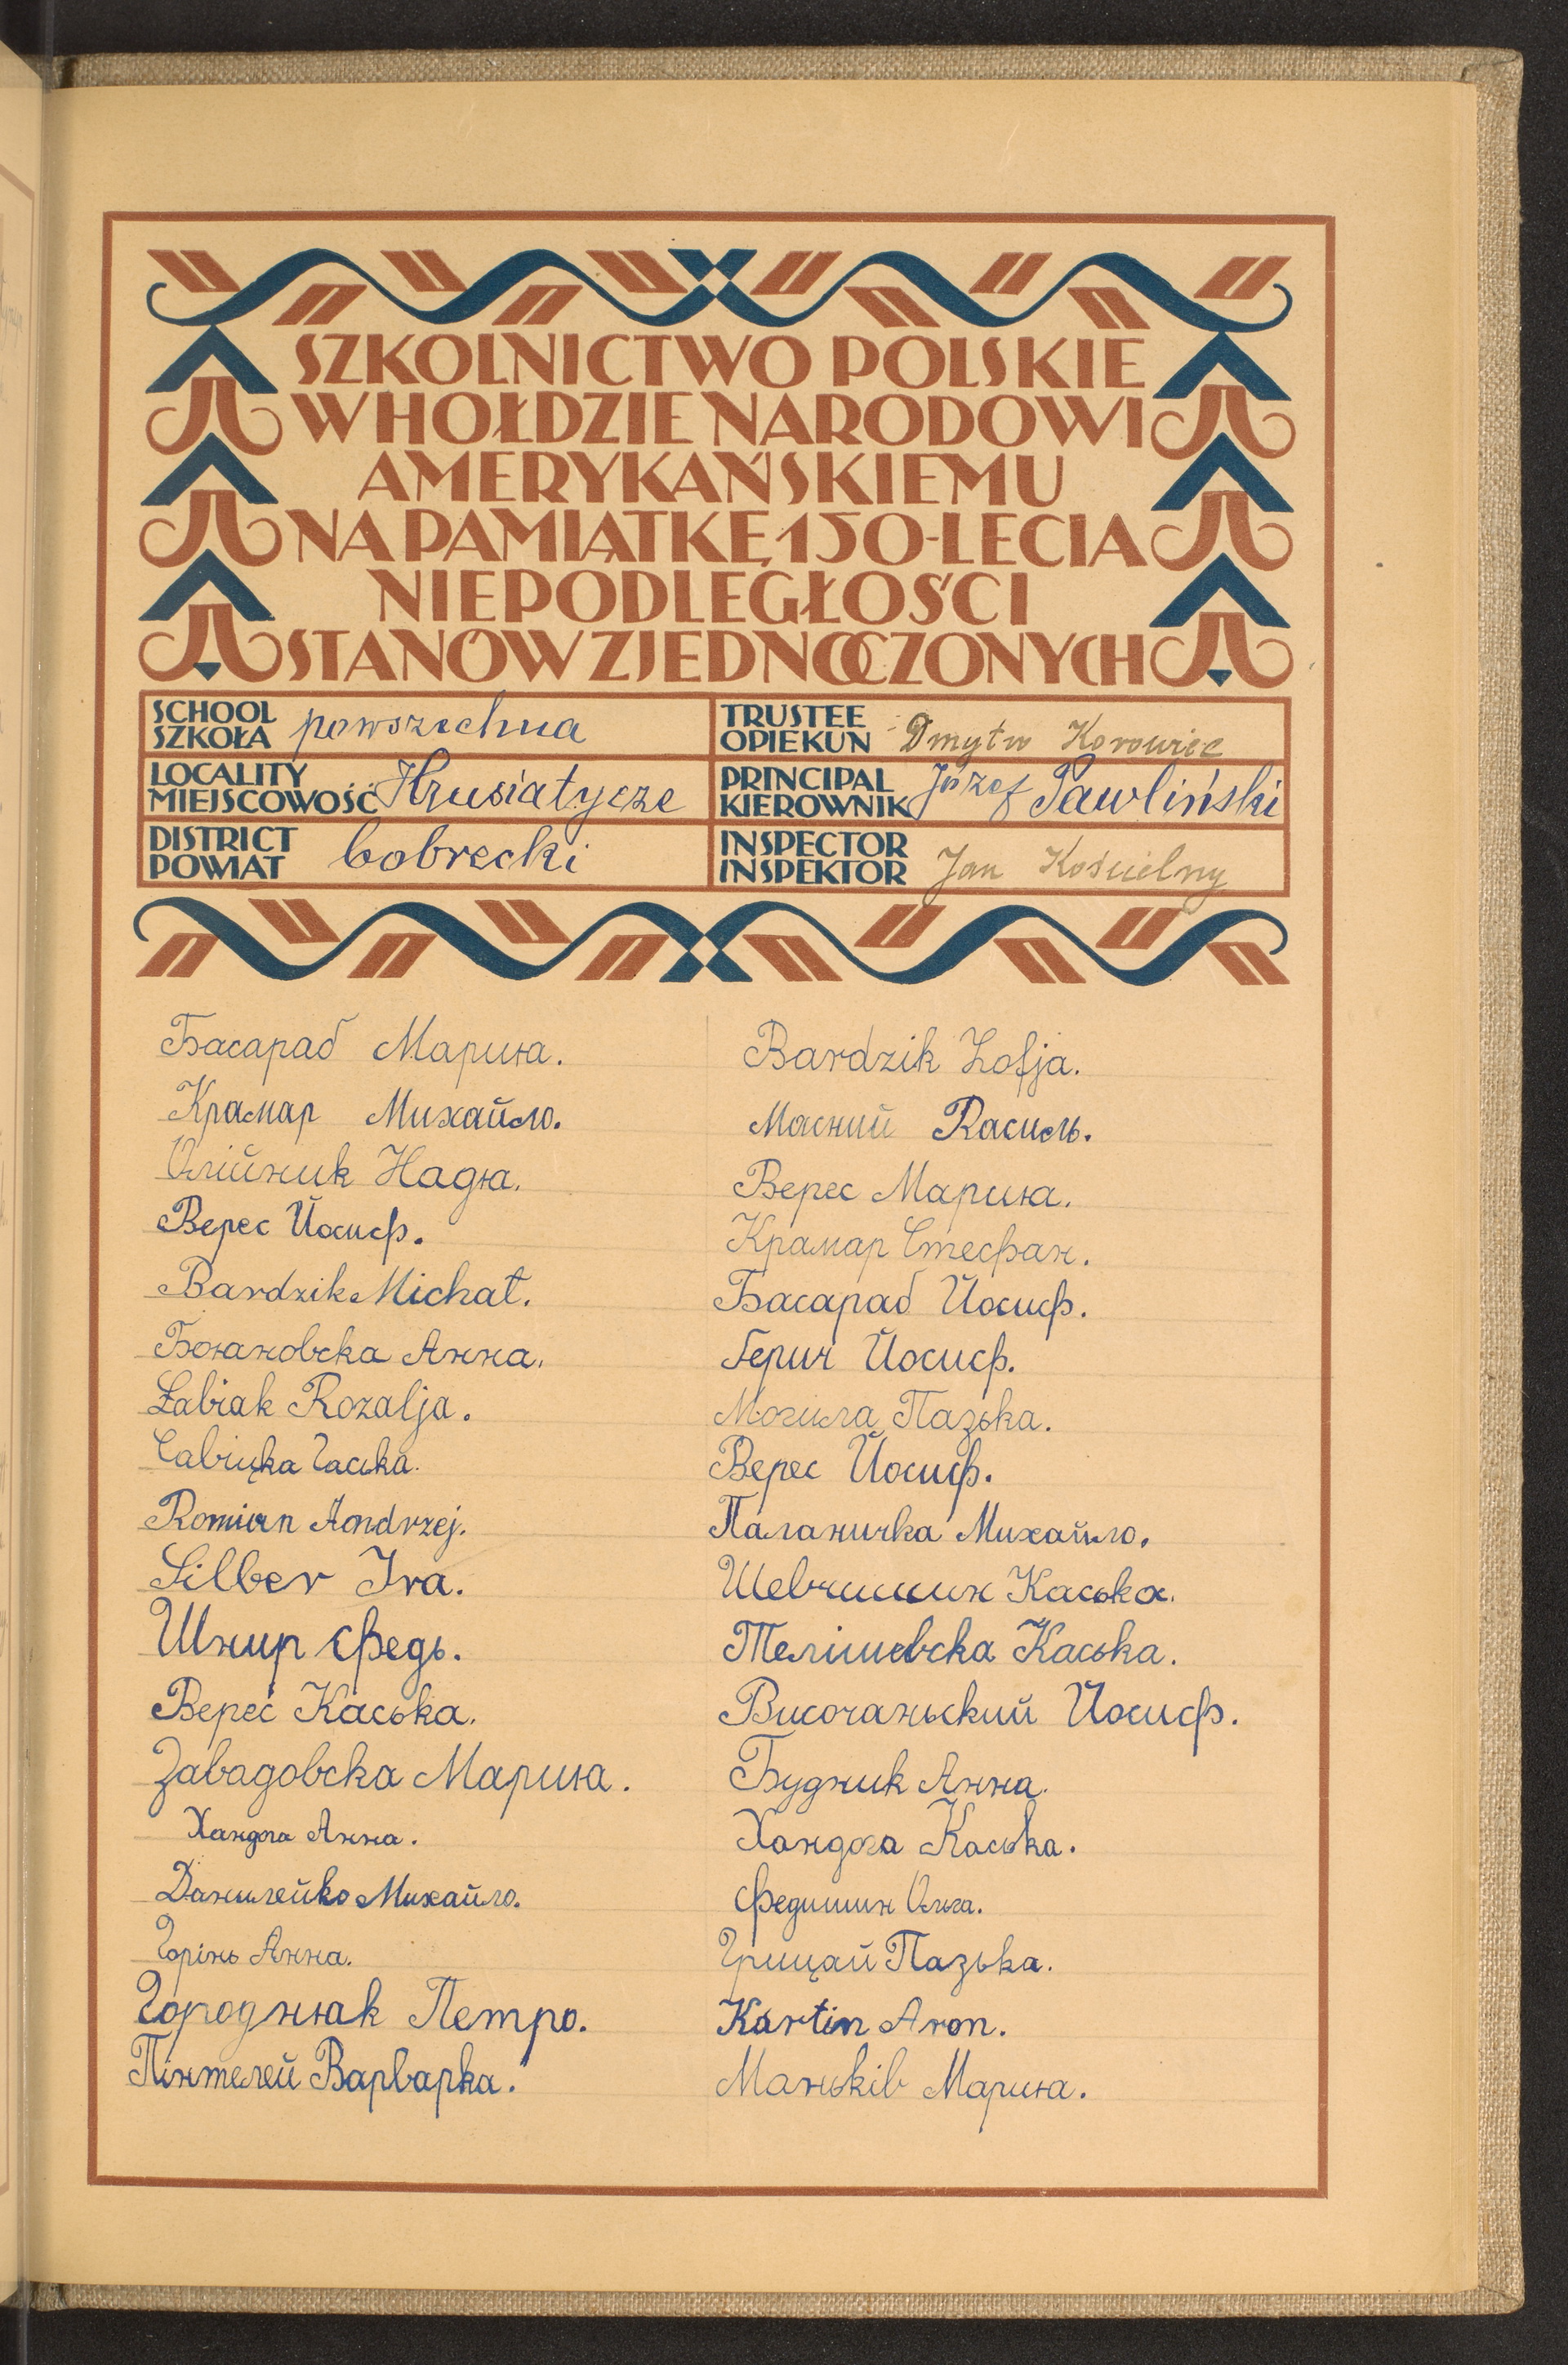 SZKOLNICTWO POLSKIE
W HOŁDZIE NARODOWI
AMERYKAŃSKIEMU
NA PAMIĄTKĘ 150-LECIA
NIEPODLEGŁOŚCI
STANÓW ZJEDNOCZONYCH
SCHOOL
SZKOŁA powszechna
TRUSTEE
OPIEKUN Dmytro Korowiec
LOCALITY
MIEJSCOWOŚĆ Hrusiatycze
PRINCIPAL
KIEROWNIK Józef Pawliński
DISTRICT
POWIAT bobrecki
INSPECTOR
INSPEKTOR Jan Kościelny
Басараб Мария.
Крамар Михайло.
Олійник Надя.
Верес Йосиф.
Bardzik Michał.
Бояновска Анна.
Łabiak Rozalja.
Савіцка Гаська.
Romian Andrzej.
Silber Ira.
Шнир Федь.
Верес Каська.
Завадовска Мария.
Хандога Анна.
Данилейко Михайло.
Горінь Анна.
Городнюк Петро.
Пінтелей Варварка.
Bardzik Zofja.
Масний Василь.
Верес Мария.
Крамар Стефан.
Басараб Йосиф.
Герич Йосиф.
Могила Пазька.
Верес Йосиф.
Паланичка Михайло.
Шевчишин Каська.
Телішевска Каська.
Височаньский Йосиф.
Будник Анна.
Хандога Каська.
Федишин Ольга.
Грицай Пазька.
Kartin Aron.
Маньків Мария.